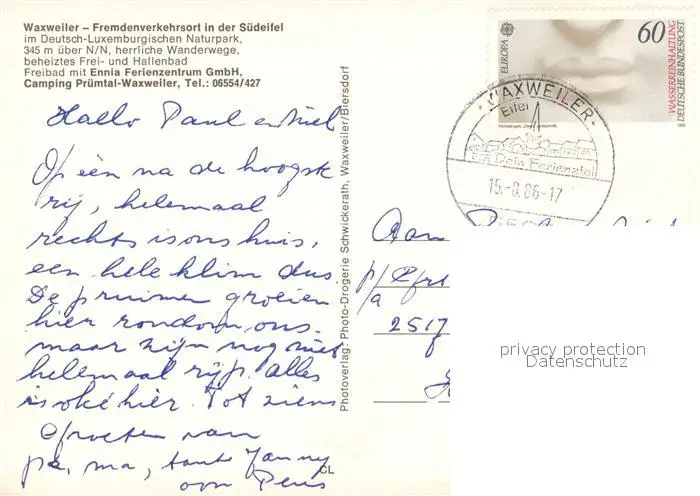 Waxweiler – Fremdenverkehrsort in der Südeifel
im Deutsch-Luxemburgischen Naturpark,
345 m über N/N, herrliche Wanderwege,
beheiztes Frei- und Hallenbad
Freibad mit Ennia Ferienzentrum GmbH,
Camping Prümtal-Waxweiler, Tel.: 06554/427
Hallo Paul en Niel
Op één na de hoogste
rij, helemaal
rechts is ons huis,
een hele klim dus.
De pruimen groeien
hier rondom ons.
maar zijn nog niet
helemaal rijp. alles
is oké hier. Tot ziens
Groeten van
pa, ma, tante Janny
oom
CL
Photoverlag: Photo-Drogerie Schwickerath, Waxweiler/Biersdorf
EUROPA
60
WASSERREINHALTUNG
DEUTSCHE BUNDESPOST
WAXWEILER
Eifel
Dein Ferienziel
15.-8.86-17
Aan
p/a
2517
privacy protection
Datenschutz